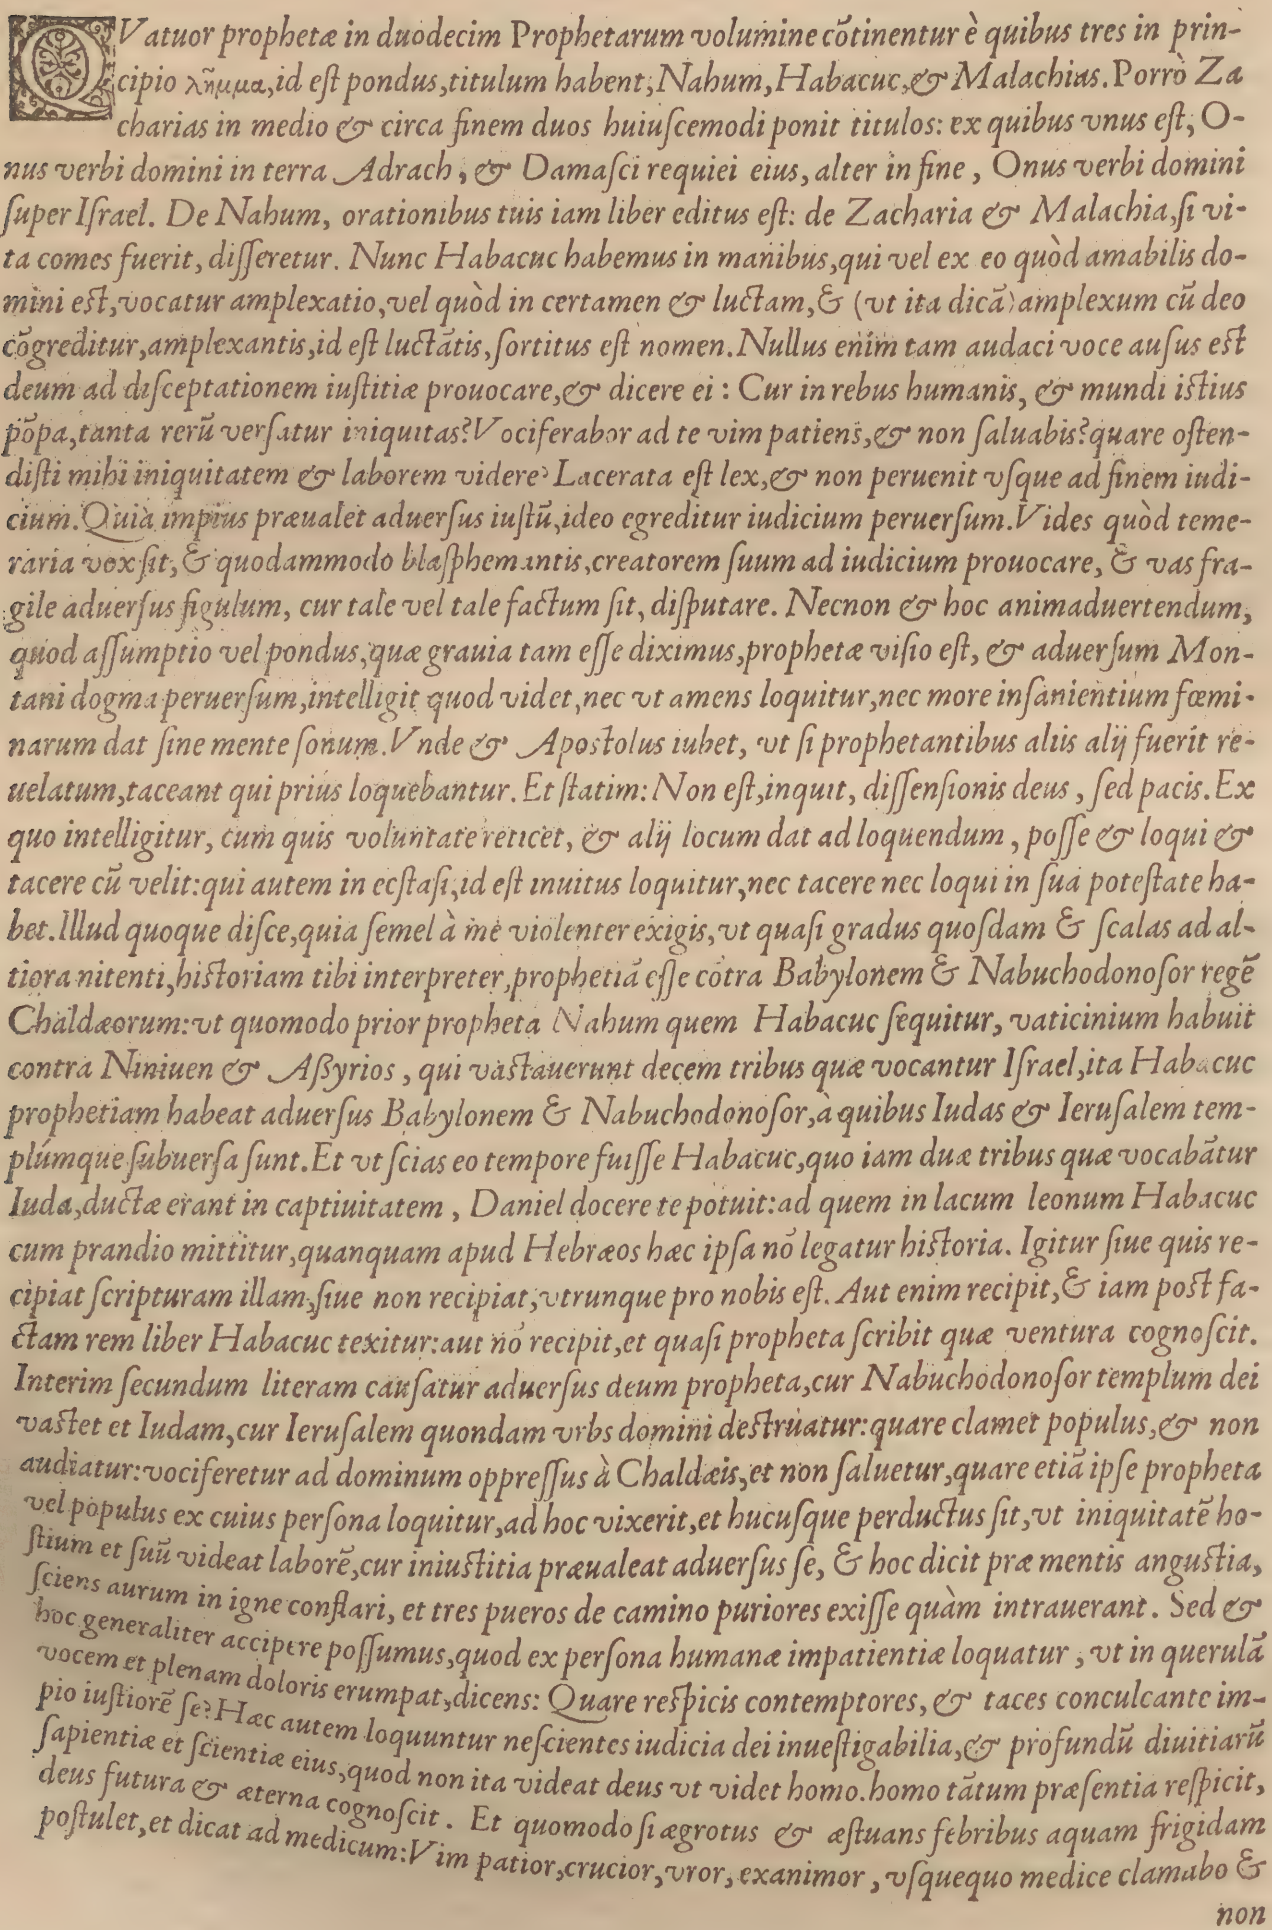 QVatuor prophetæ in duodecim Prophetarum volumine cõtinentur è quibus tres in prin-
cipio λῆμμα, id eſt pondus, titulum habent, Nahum, Habacuc, & Malachias. Porrò Za
charias in medio & circa finem duos huiuſcemodi ponit titulos: ex quibus vnus eſt, O-
nus verbi domini in terra Adrach, & Damaſci requiei eius, alter in fine, Onus verbi domini
ſuper Iſrael. De Nahum, orationibus tuis iam liber editus eſt: de Zacharia & Malachia, ſi vi-
ta comes fuerit, diſſeretur. Nunc Habacuc habemus in manibus, qui vel ex eo quòd amabilis do-
mini eſt, vocatur amplexatio, vel quòd in certamen & luctam, & (vt ita dicã) amplexum cũ deo
cõgreditur, amplexantis, id eſt luctãtis, ſortitus eſt nomen. Nullus enim tam audaci voce auſus eſt
deum ad diſceptationem iuſtitiæ prouocare, & dicere ei: Cur in rebus humanis, & mundi iſtius
põpa, tanta rerũ verſatur iniquitas? Vociferabor ad te vim patiens, & non ſaluabis? quare oſten-
diſti mihi iniquitatem & laborem videre? Lacerata eſt lex, & non peruenit vſque ad finem iudi-
cium. Quia impius præualet aduerſus iuſtũ, ideo egreditur iudicium peruerſum. Vides quòd teme-
raria vox ſit, & quodammodo blaſphemantis, creatorem ſuum ad iudicium prouocare, & vas fra-
gile aduerſus figulum, cur tale vel tale factum ſit, diſputare. Necnon & hoc animaduertendum,
quod aſſumptio vel pondus, quæ grauia tam eſſe diximus, prophetæ viſio eſt, & aduerſum Mon-
tani dogma peruerſum, intelligit quod videt, nec vt amens loquitur, nec more inſanientium fœmi-
narum dat ſine mente ſonum. Vnde & Apoſtolus iubet, vt ſi prophetantibus aliis alij fuerit re-
uelatum, taceant qui priùs loquebantur. Et ſtatim: Non eſt, inquit, diſſenſionis deus, ſed pacis. Ex
quo intelligitur, cum quis voluntate reticet, & alij locum dat ad loquendum, poſſe & loqui &
tacere cũ velit: qui autem in ecſtaſi, id eſt inuitus loquitur, nec tacere nec loqui in ſua poteſtate ha-
bet. Illud quoque diſce, quia ſemel à me violenter exigis, vt quaſi gradus quoſdam & ſcalas ad al-
tiora nitenti, hiſtoriam tibi interpreter, prophetiã eſſe cõtra Babylonem & Nabuchodonoſor regẽ
Chaldæorum: vt quomodo prior propheta Nahum quem Habacuc ſequitur, vaticinium habuit
contra Niniuen & Aſsyrios, qui vaſtauerunt decem tribus quæ vocantur Iſrael, ita Habacuc
prophetiam habeat aduerſus Babylonem & Nabuchodonoſor, à quibus Iudas & Ieruſalem tem-
plúmque ſubuerſa ſunt. Et vt ſcias eo tempore fuiſſe Habacuc, quo iam duæ tribus quæ vocabãtur
Iuda, ductæ erant in captiuitatem, Daniel docere te potuit: ad quem in lacum leonum Habacuc
cum prandio mittitur, quanquam apud Hebræos hæc ipſa nõ legatur hiſtoria. Igitur ſiue quis re-
cipiat ſcripturam illam, ſiue non recipiat, vtrunque pro nobis eſt. Aut enim recipit, & iam poſt fa-
ctam rem liber Habacuc texitur: aut nõ recipit, et quaſi propheta ſcribit quæ ventura cognoſcit.
Interim ſecundum literam cauſatur aduerſus deum propheta, cur Nabuchodonoſor templum dei
vaſtet et Iudam, cur Ieruſalem quondam vrbs domini deſtruatur: quare clamet populus, & non
audiatur: vociferetur ad dominum oppreſſus à Chaldæis, et non ſaluetur, quare etiã ipſe propheta
vel populus ex cuius perſona loquitur, ad hoc vixerit, et hucuſque perductus ſit, vt iniquitatẽ ho-
ſtium et ſuũ videat laborẽ, cur iniuſtitia præualeat aduerſus ſe, & hoc dicit præ mentis anguſtia,
ſciens aurum in igne conflari, et tres pueros de camino puriores exiſſe quàm intrauerant. Sed &
hoc generaliter accipere poſſumus, quod ex perſona humanæ impatientiæ loquatur, vt in querulã
vocem et plenam doloris erumpat, dicens: Quare reſpicis contemptores, & taces conculcante im-
pio iuſtiorẽ ſe? Hæc autem loquuntur neſcientes iudicia dei inueſtigabilia, & profundũ diuitiarũ
ſapientiæ et ſcientiæ eius, quod non ita videat deus vt videt homo. homo tãtum præſentia reſpicit,
deus futura & æterna cognoſcit. Et quomodo ſi ægrotus & æſtuans febribus aquam frigidam
poſtulet, et dicat ad medicum: Vim patior, crucior, vror, exanimor, vſquequo medice clamabo &
non